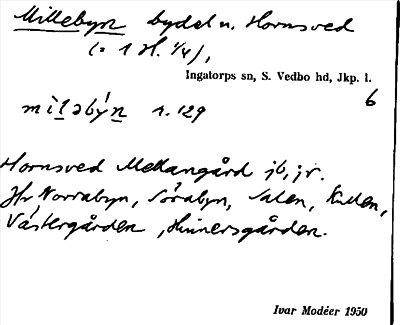 Millebyn bydel u. Hornsved
(= 1 H. 1/4),
Ingatorps sn, S. Vedbo hd, Jkp. l.
6
mìləbýn 1.129
Hornsved Mellangård jb, jr.
Hr Norrabyn, Sörabyn, Salen, Kullen,
Västergården, Hinnersgården.
Ivar Modéer 1950